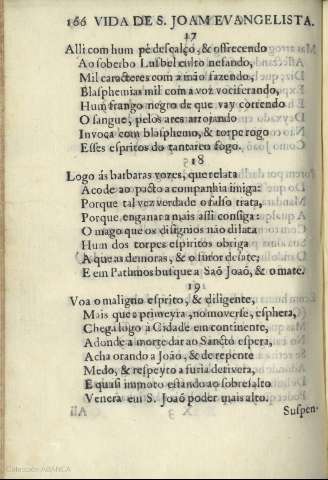 166 VIDA DE S. JOAM EVANGELISTA.
17
Alli com hum pè descalço, & offrecendo
Ao soberbo Lusbel culto nefando,
Mil caracteres com a mão fazendo,
Blasphemias mil com a voz vociferando,
Hum frango negro de que vay correndo
O sangue, pelos ares arrojando
Invoca com blasphemo, & torpe rogo
Esses espritos do tantareo fogo.
18
Logo ás barbaras vozes, que relata
Acode ao pacto a companhia imiga:
Porque tal vez verdade o falso trata,
Porque enganar a mais assi consiga:
O mago que os disignios não dilata
Hum dos torpes espiritos obriga
A que as demoras, & o furor desate;
E em Pathmos busque a Saõ Joaõ, & o mate.
19
Voa o maligno esprito, & diligente,
Mais que a primeyra, no mover se, esphera,
Chega logo à Cidade em continente,
Adonde a morte dar ao Sancto espera,
Acha orando a João, & de repente
Medo, & respeyto a furia derivera,
E quasi immoto estando ao sobresalto
Venera em S. Joaõ poder mais alto.
Suspen-
Colección ABANCA